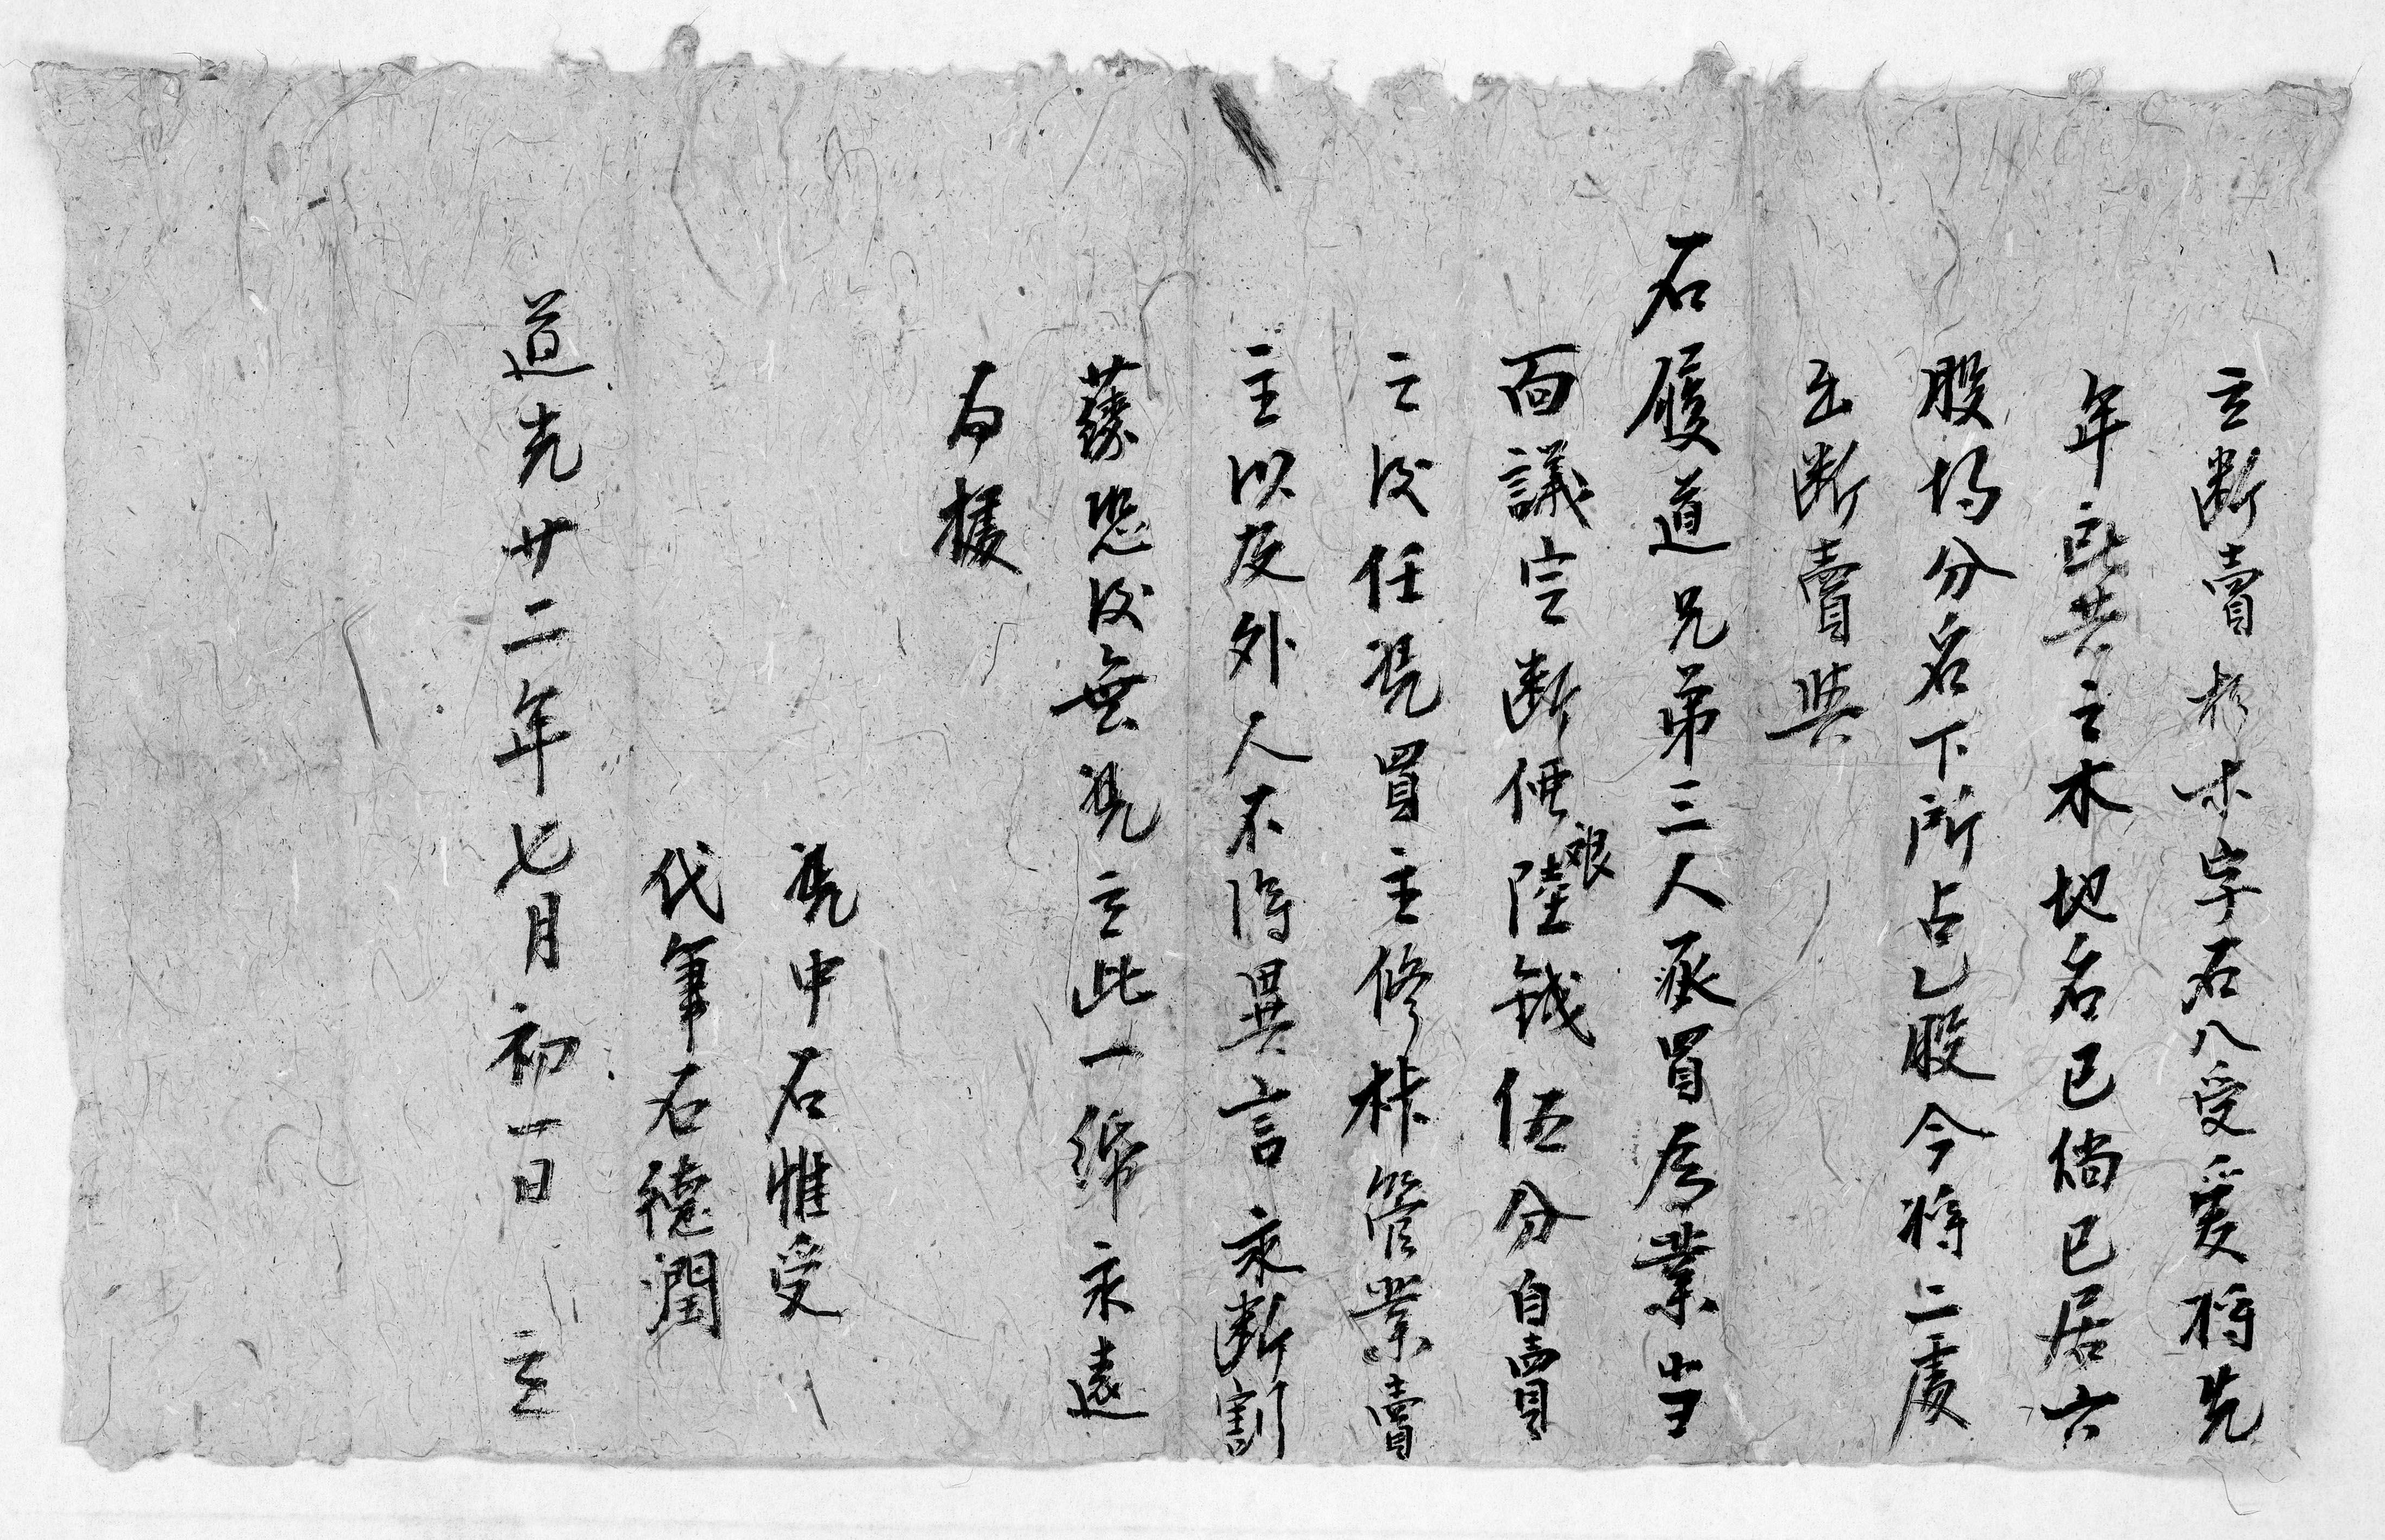 立断賣杉木字石八受爰将先
年砍共之木地名巴倘巴居六
股均分名下所占乚股今将二處
出断賣與
石履道兄弟三人承買為業当
面議定断價銀陸錢伍分自賣
之後任凴買主修栨管業賣
主以及外人不淂異言永断割
藤恐後無凴立此一紙永遠
為據
凴中石惟受
代筆石德潤
道光廿二年七月初一日 立